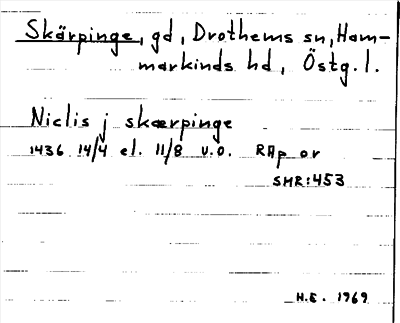 Skärpinge, gd, Drothems sn, Ham-
markinds hd, Östg. l.
Niclis j skærpinge
1436 14/4 el. 11/8 u.o. RAp or
SMR:453
H.E. 1969